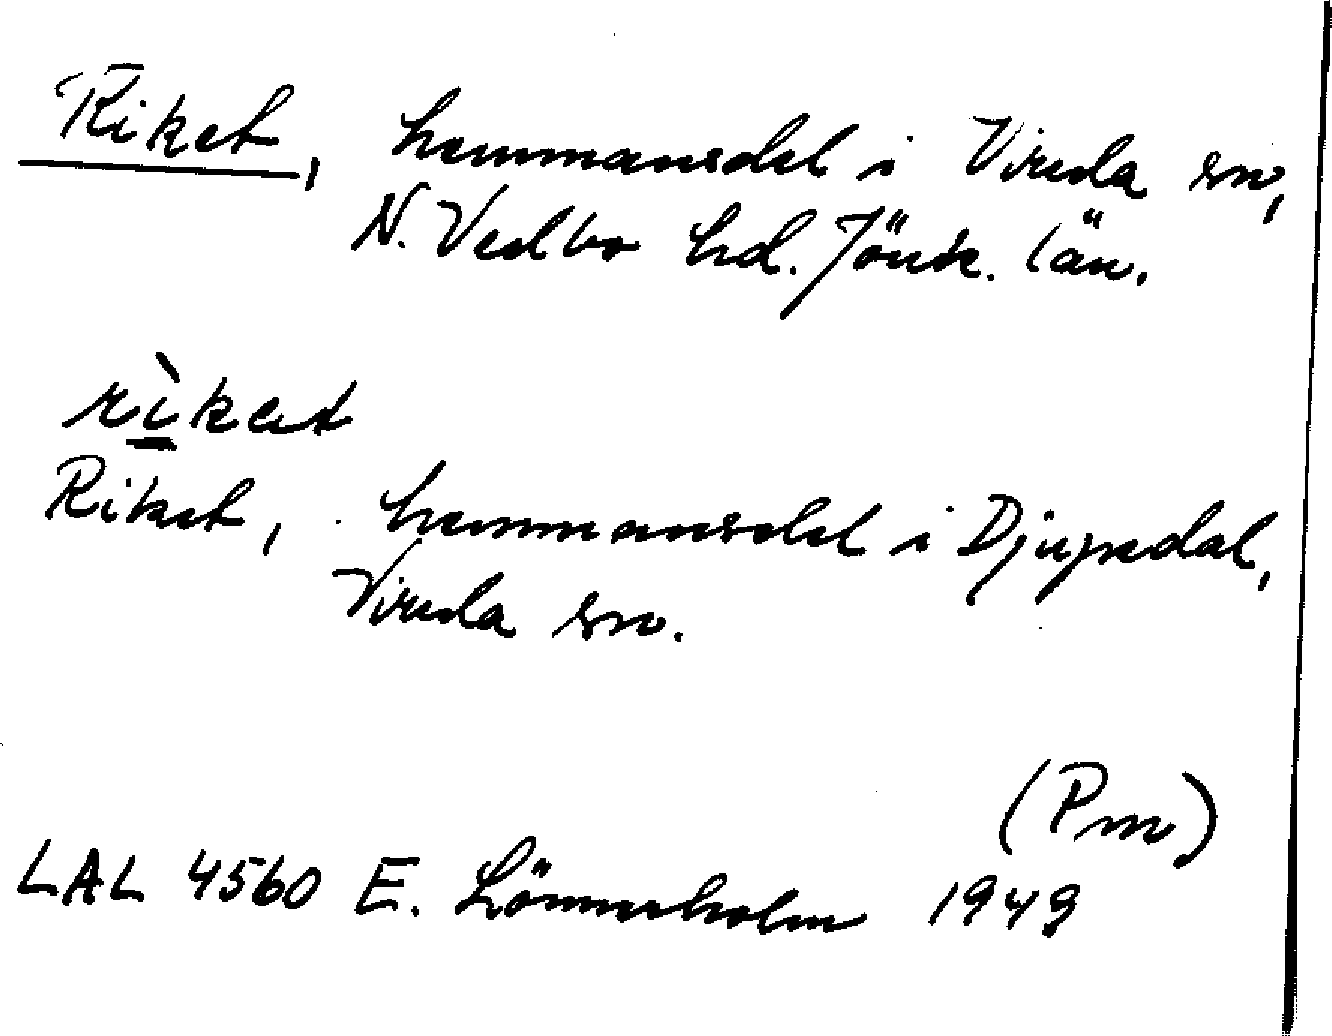 Riket, hemmansdel i Vireda sn,
N. Vedbo hd. Jönk. län.
rìket
Riket, hemmansdel i Djupedal,
Vireda sn.
(Pm)
LAL 4560 E. Lönnerholm 1949